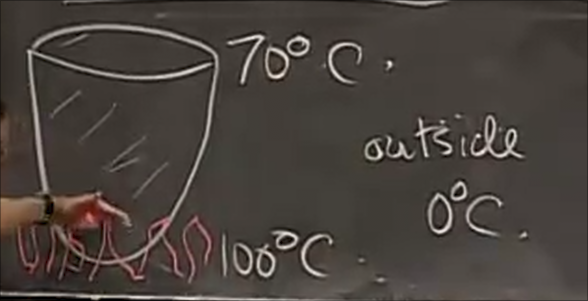 70°C.
outside
0°C.
100°C